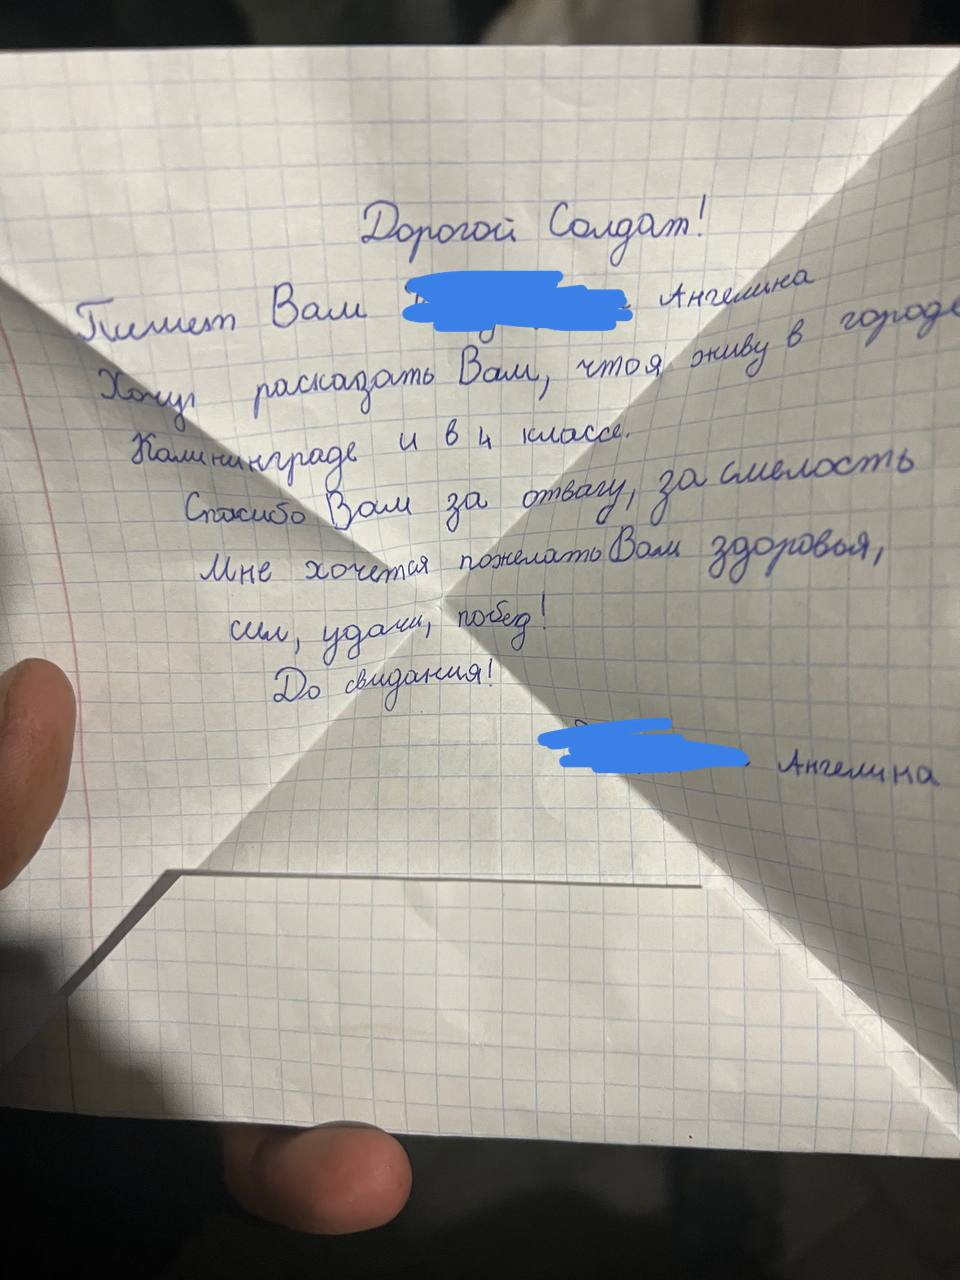 Дорогой Солдат!
Пишет Вам Ангелина
Хочу расказать Вам, что я живу в городе
Калининграде и в 4 классе.
Спасибо Вам за отвагу, за смелость
Мне хочется пожелать Вам здоровья,
сил, удачи, побед!
До свидания!
Ангелина